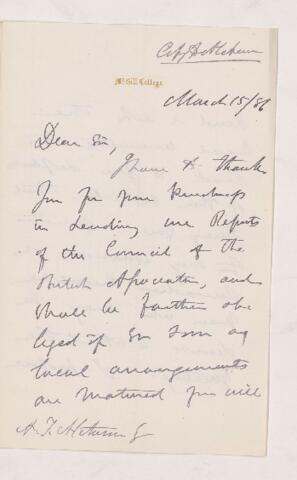 McGill College.
March 15/86
Dear Sir,
I have to thank
you for your kindness
in sending me Reports
of the Council of the
British Association, and
shall be further ob
liged if so soon as
local arrangements
are matured you will